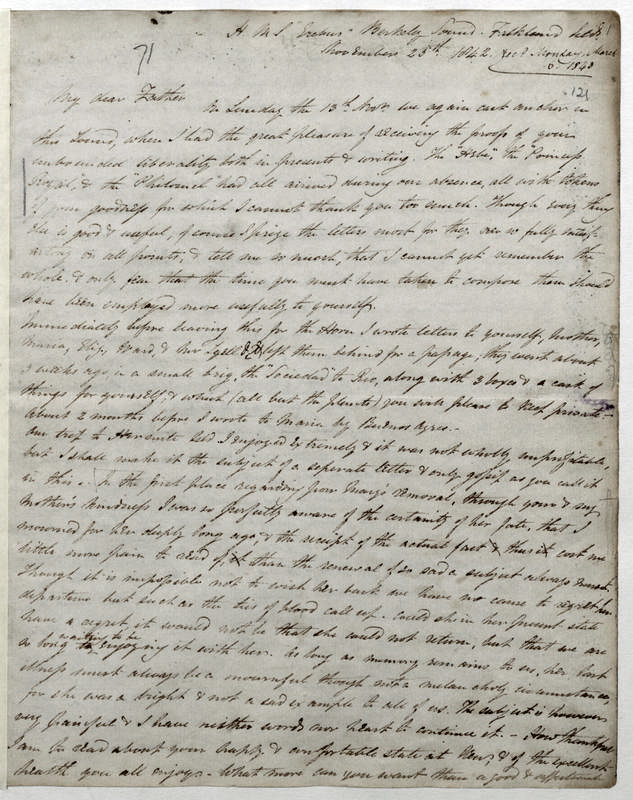 71
H.M.S. "Erebus" Berkeley Sound. Falkland Isds
November 25th. 1842. Recd Monday, March
6. 1843
121
My dear Father
On Sunday the 13th Novr we again cast anchor in
this Sound, when I had the great pleasure of receiving the proofs of your
unbounded liberality both in presents & writing. The "Arbre", the "Princess
Royal", & the "Philomel" had all arrived during our absence, all with tokens
of your goodness for which I cannot thank you too much. Though every thing
else is good & useful, of course I prize the letters most for they are so fully inter-
esting on all points, & tell me so much, that I cannot yet remember the
whole, & only fear that the time you must have taken to compose them should
have been employed more usefully to yourself.
Immediately before leaving this for the Horn I wrote letters to yourself, Mother,
Maria, Eliz, Ward, & Mr Lyell & left them behind for a passage, they went about
3 weeks ago in a small brig, the "Sociedad" to Rio, along with 3 boxes & a cask of
things for yourself & which (all but the plants) you will please to keep private.—
About 2 months before I wrote to Maria by Buenos Ayres.—
Our trip to Hermite Isld I enjoyed extremely & it was not wholly unprofitable,
but I shall make it the subject of a seperate letter & only gossip as you call it
in this.— In the first place regarding poor Mary's removal, through your & my
Mother's kindness I was so perfectly aware of the certainty of her fate, that I
mourned for her deeply long ago & the receipt of the actual fact & thus it cost me
little more pain to read of it than the renewal of so sad a subject always must.
Though it is impossible not to wish her back we have no cause to regret her
departure but such as the ties of blood call up. Could she in her present state
have a regret it would not be that she could not return, but that we are
so long waiting to be enjoying it with her. As long as memory remains to us, her last
illness must always be a mournful though not a melancholy circumstance,
for she was a bright & not a sad example to all of us. The subject is however
very painful & I have neither words nor heart to continue it.— How thankful
I am to read about your happy & comfortable state at Kew, & of the excellent
health you all enjoy.— What more can you want than a good & affectionate